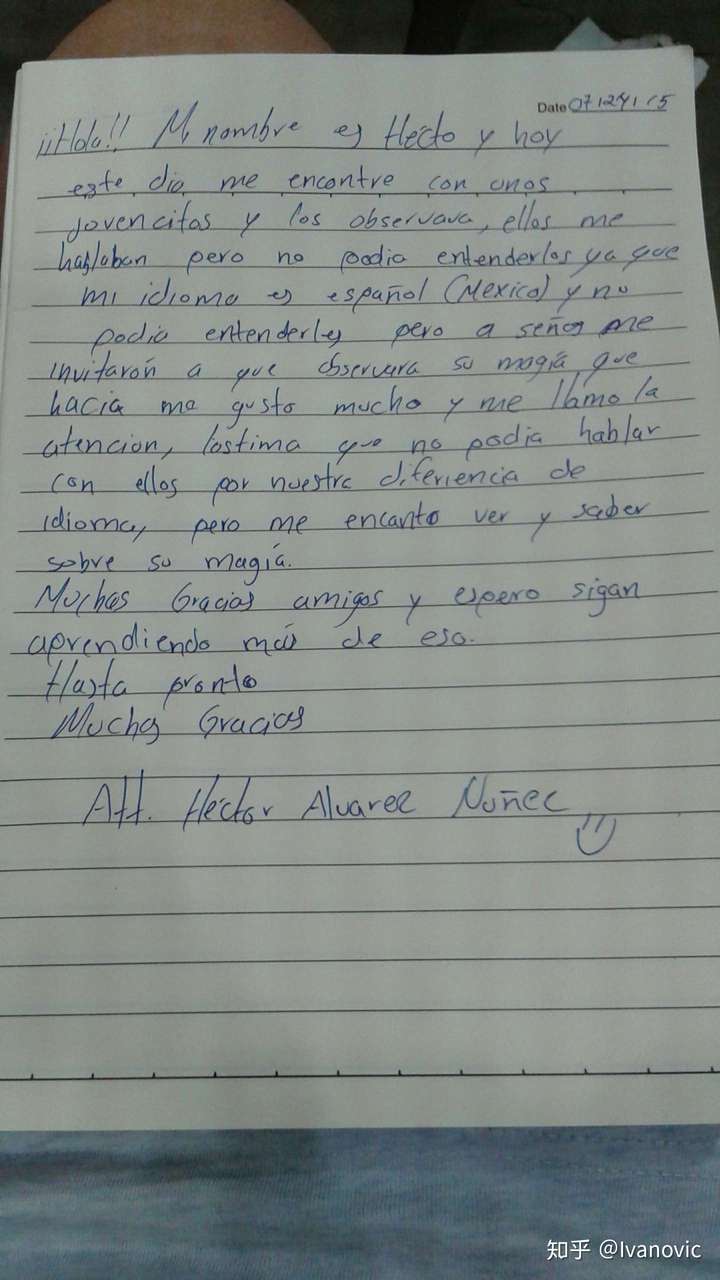 Date 07/24/15
¡¡Hola!! Mi nombre es Hécto y hoy
este dia me encontre con unos
jovencitos y los observava, ellos me
hablaban pero no podia entenderlos ya que
mi idioma es español (Mexico) y no
podia entenderles pero a señas me
invitarón a que observara su magía que
hacia me gusto mucho y me llamo la
atencion, lastima que no podia hablar
con ellos por nuestra diferiencia de
idioma, pero me encanto ver y saber
sobre su magía.
Muchas Gracias amigos y espero sigan
aprendiendo más de eso.
Hasta pronto
Muchas Gracias
Att. Héctor Alvarez Nuñez
知乎 @Ivanovic